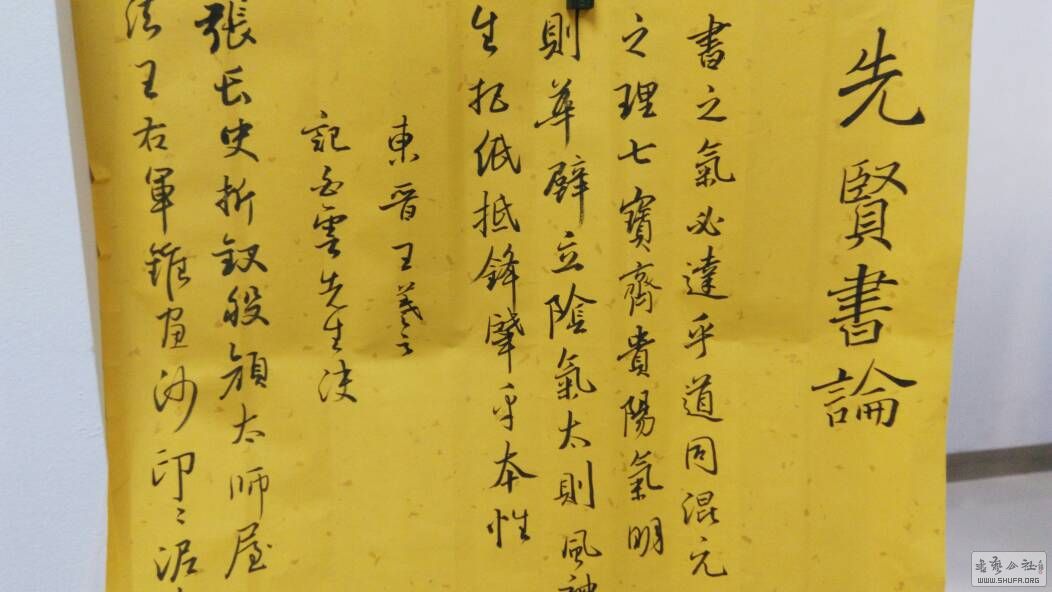 先賢書論
書之氣必達乎道同混元
之理七寶齊貴陽氣明
則華壁立陰氣太則風神
生把紙抵鋒肇乎本性
東晉王羲之
記白雲先生決
張長史折釵股顏太師屋
法王右軍錐画沙印印泥
WWW.SHUFA.ORG